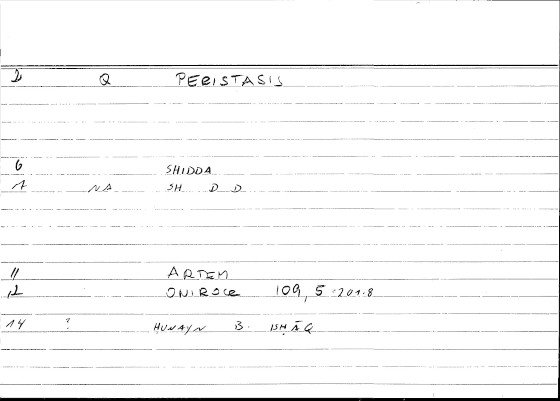 2 Q PERISTASIS
6 SHIDDA
1 NA SH D D
11 ARTEM
12 ONIROCR 109,5 = 201.8
14 ? HUNAYN B. ISHĀQ